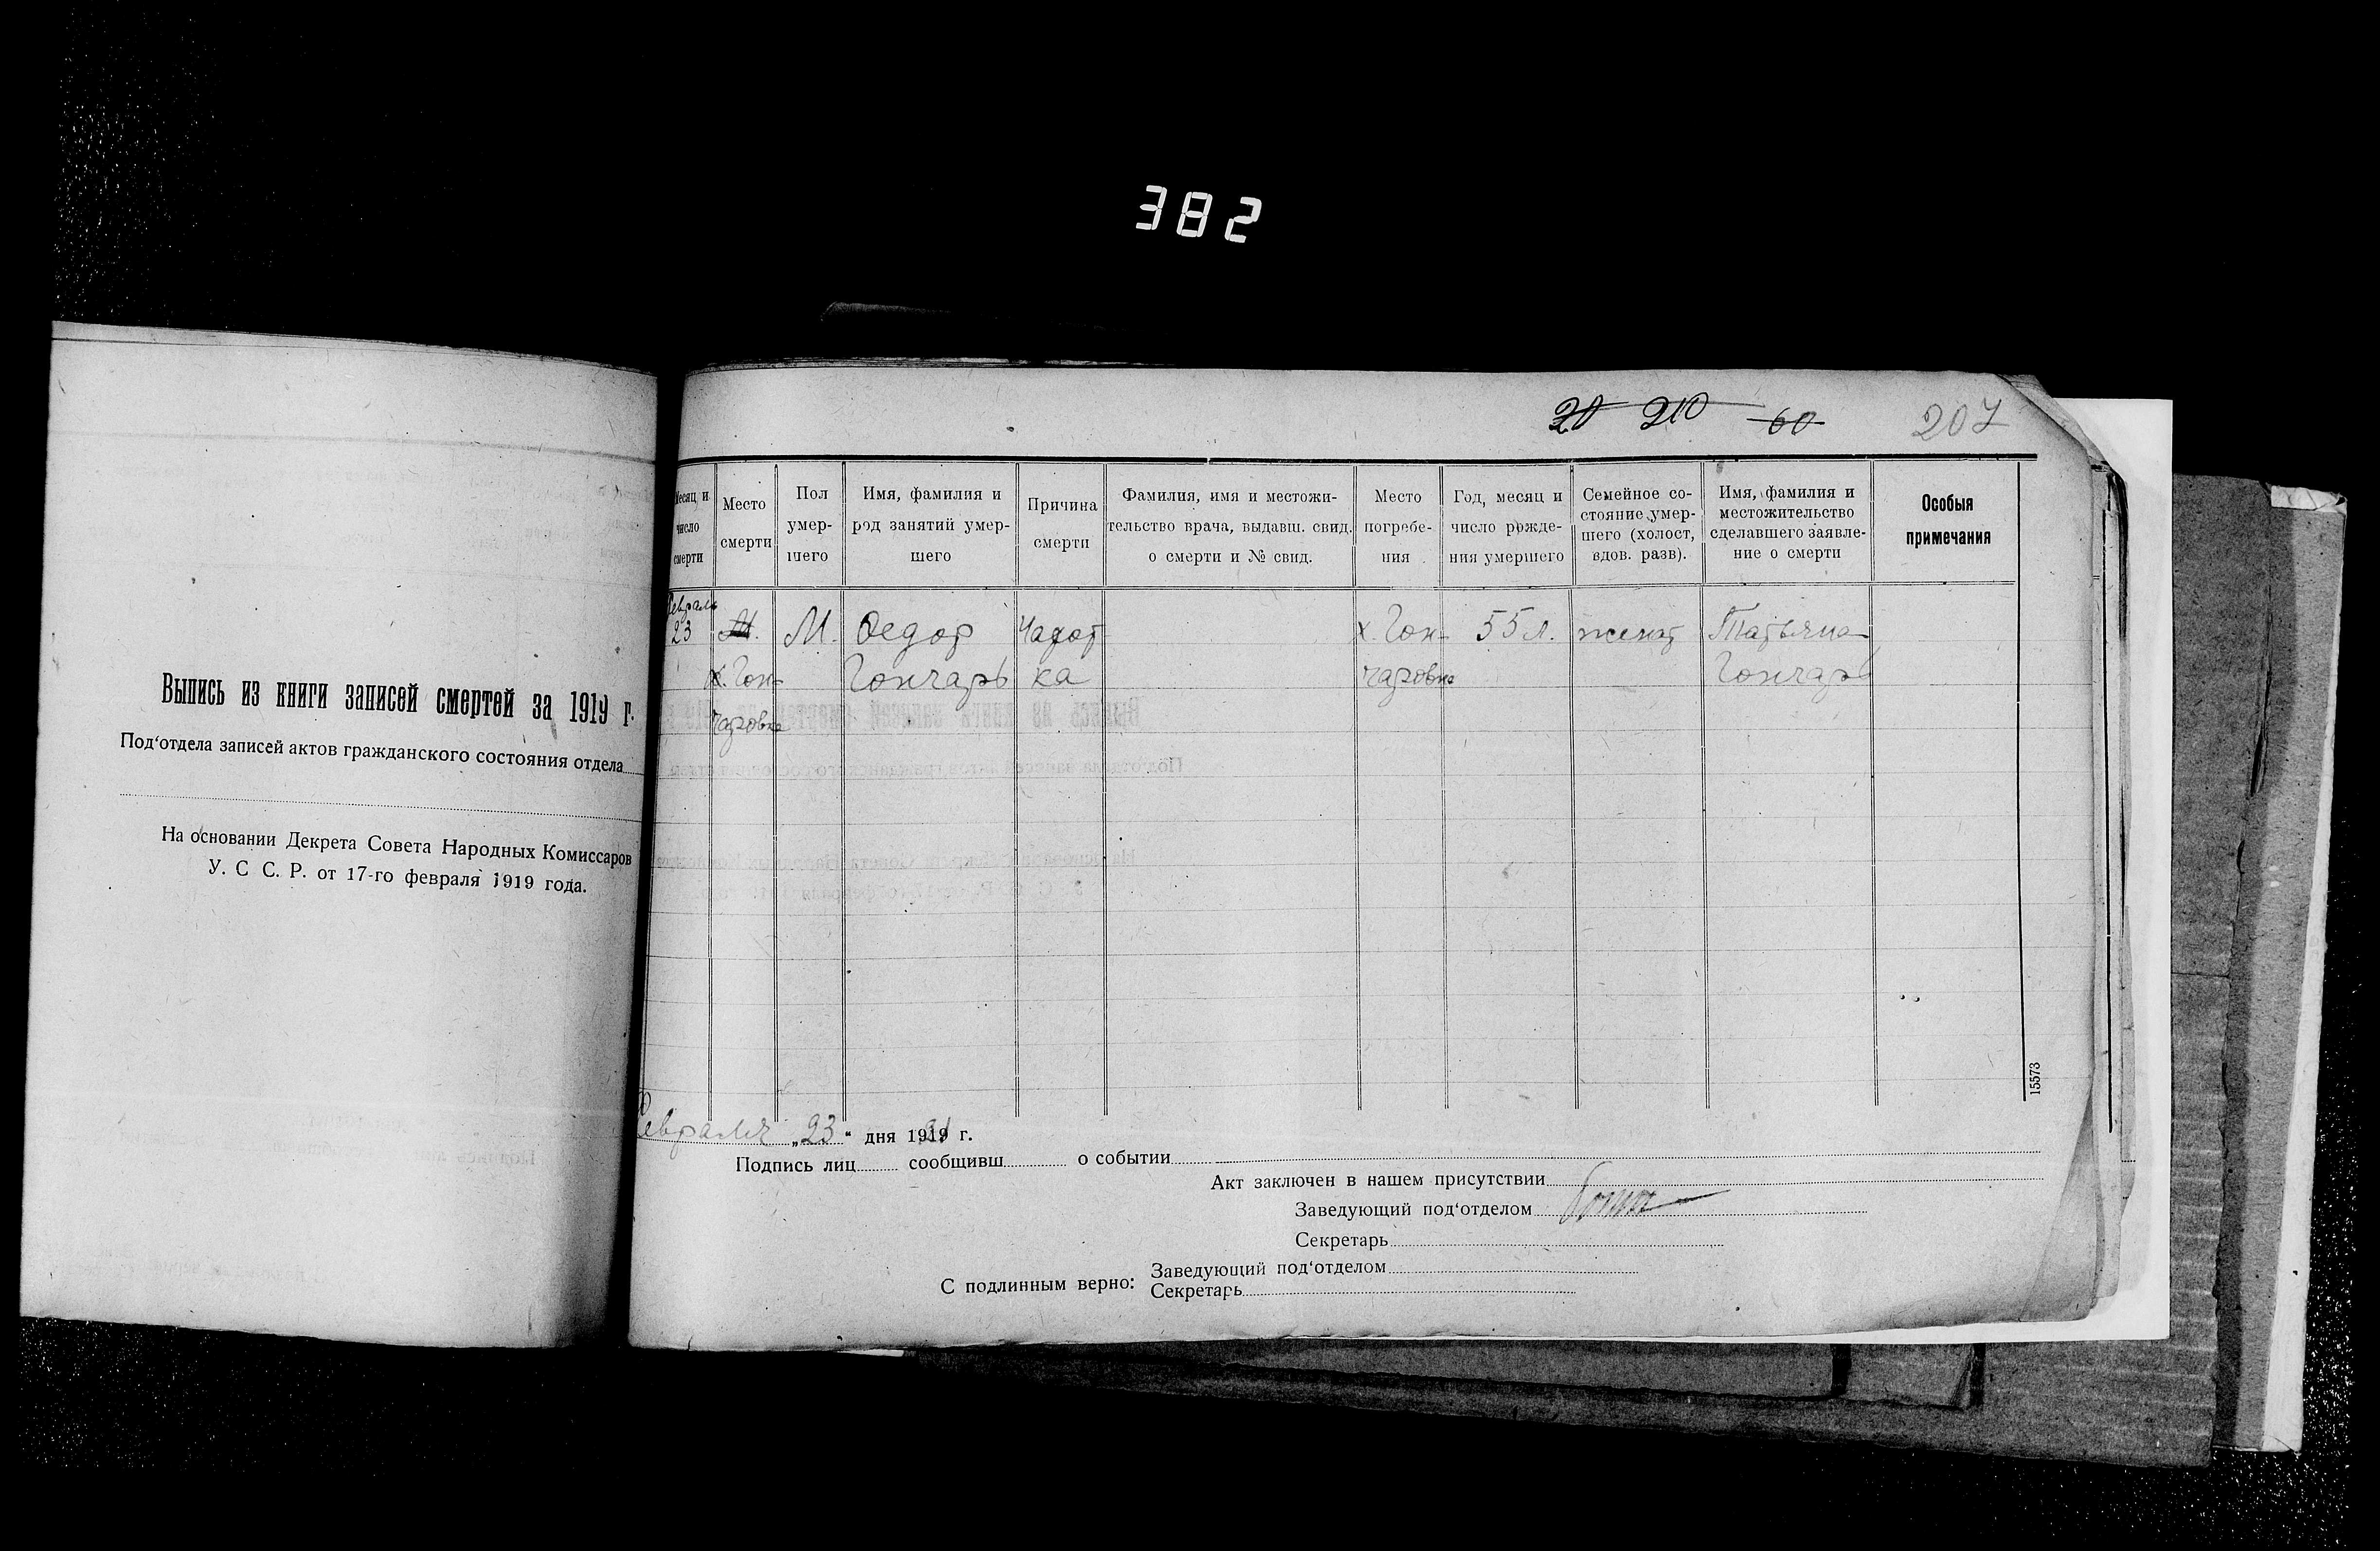 382
20 210 60 207
Выпись из книги записей смертей за 1919 г.
Под‘отдела записей актов гражданского состояния отдела
На основании Декрета Совета Народных Комиссаров
У. С С. Р. от 17-го февраля 1919 года.
Месяц и число смерти
Место смерти
Пол умер-
шего
Имя, фамилия и
род занятий умер-
шего
Причина
смерти
Фамилия, имя и местожи-
тельство врача, выдавш. свид.
о смерти и № свид.
Место
погребе-
ния
Год, месяц и
число рожде-
ния умершего
Семейное со-
стояние умер-
шего (холост,
вдов. разв).
Имя, фамилия и
местожительство
сделавшего заявле-
ние о смерти
Особыя
примечания
Февраль
23
М.
х. Гон-
чаровка
М.
Федор
Гончарь
Чахот
ка
х. Гон-
чаровка
55 л.
женат
Татьяна
Гончарь
15573
Февраля „23“ дня 1921 г.
Подпись лиц сообщивш о событии
Акт заключен в нашем присутствии
Заведующий под‘отделом
Секретарь
С подлинным верно:
Заведующий под‘отделом
Секретарь